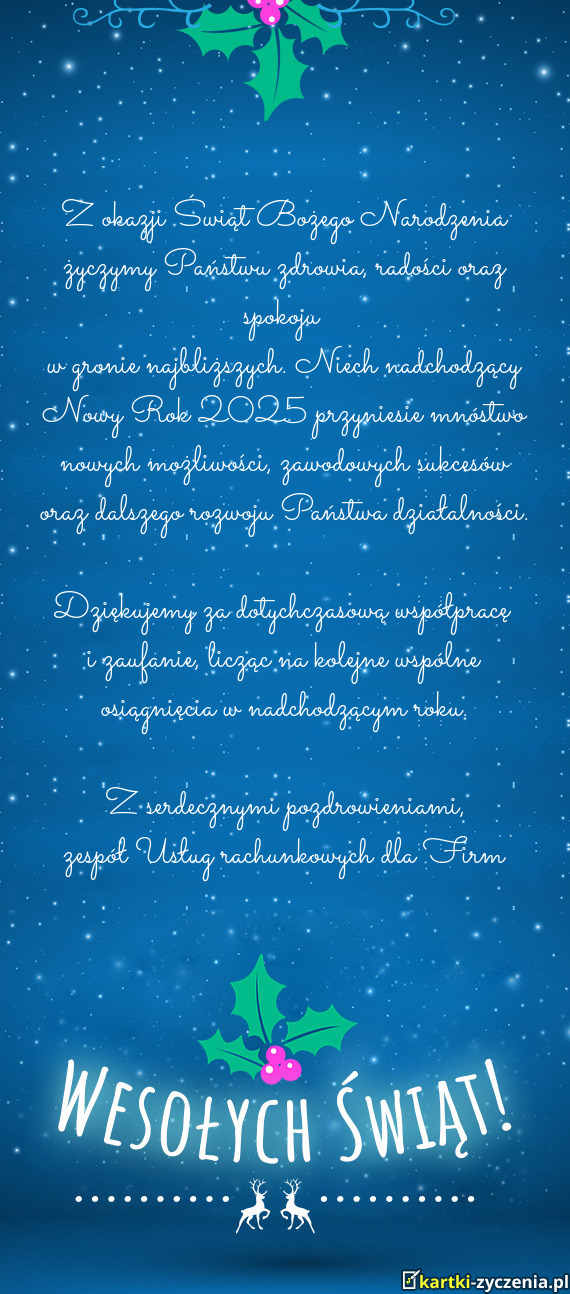 Z okazji Świąt Bożego Narodzenia
życzymy Państwu zdrowia, radości oraz
spokoju
w gronie najbliższych. Niech nadchodzący
Nowy Rok 2025 przyniesie mnóstwo
nowych możliwości, zawodowych sukcesów
oraz dalszego rozwoju Państwa działalności.
Dziękujemy za dotychczasową współpracę
i zaufanie, licząc na kolejne wspólne
osiągnięcia w nadchodzącym roku.
Z serdecznymi pozdrowieniami,
zespół Usług rachunkowych dla Firm
Wesołych Świąt!
kartki-zyczenia.pl